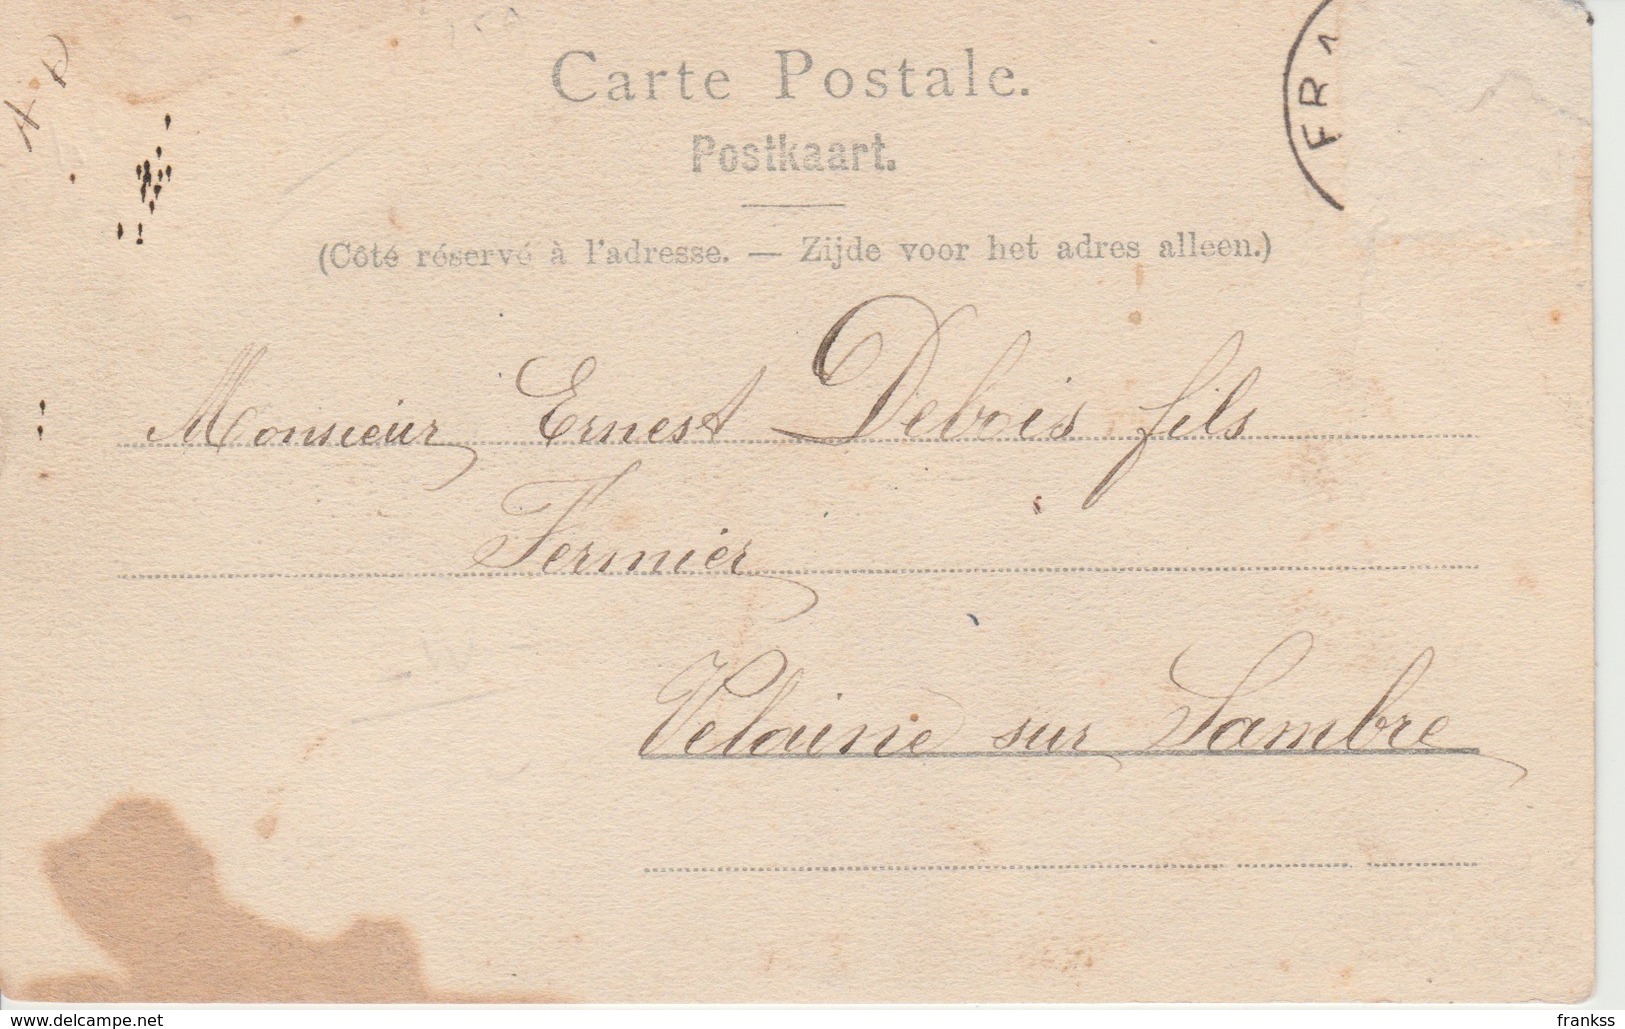 Carte Postale.
Postkaart.
(Côté réservé à l'adresse. — Zijde voor het adres alleen.)
FRA
Monsieur Ernest Debois fils
Fermier
Velaine sur Sambre
www.delcampe.net
frankss